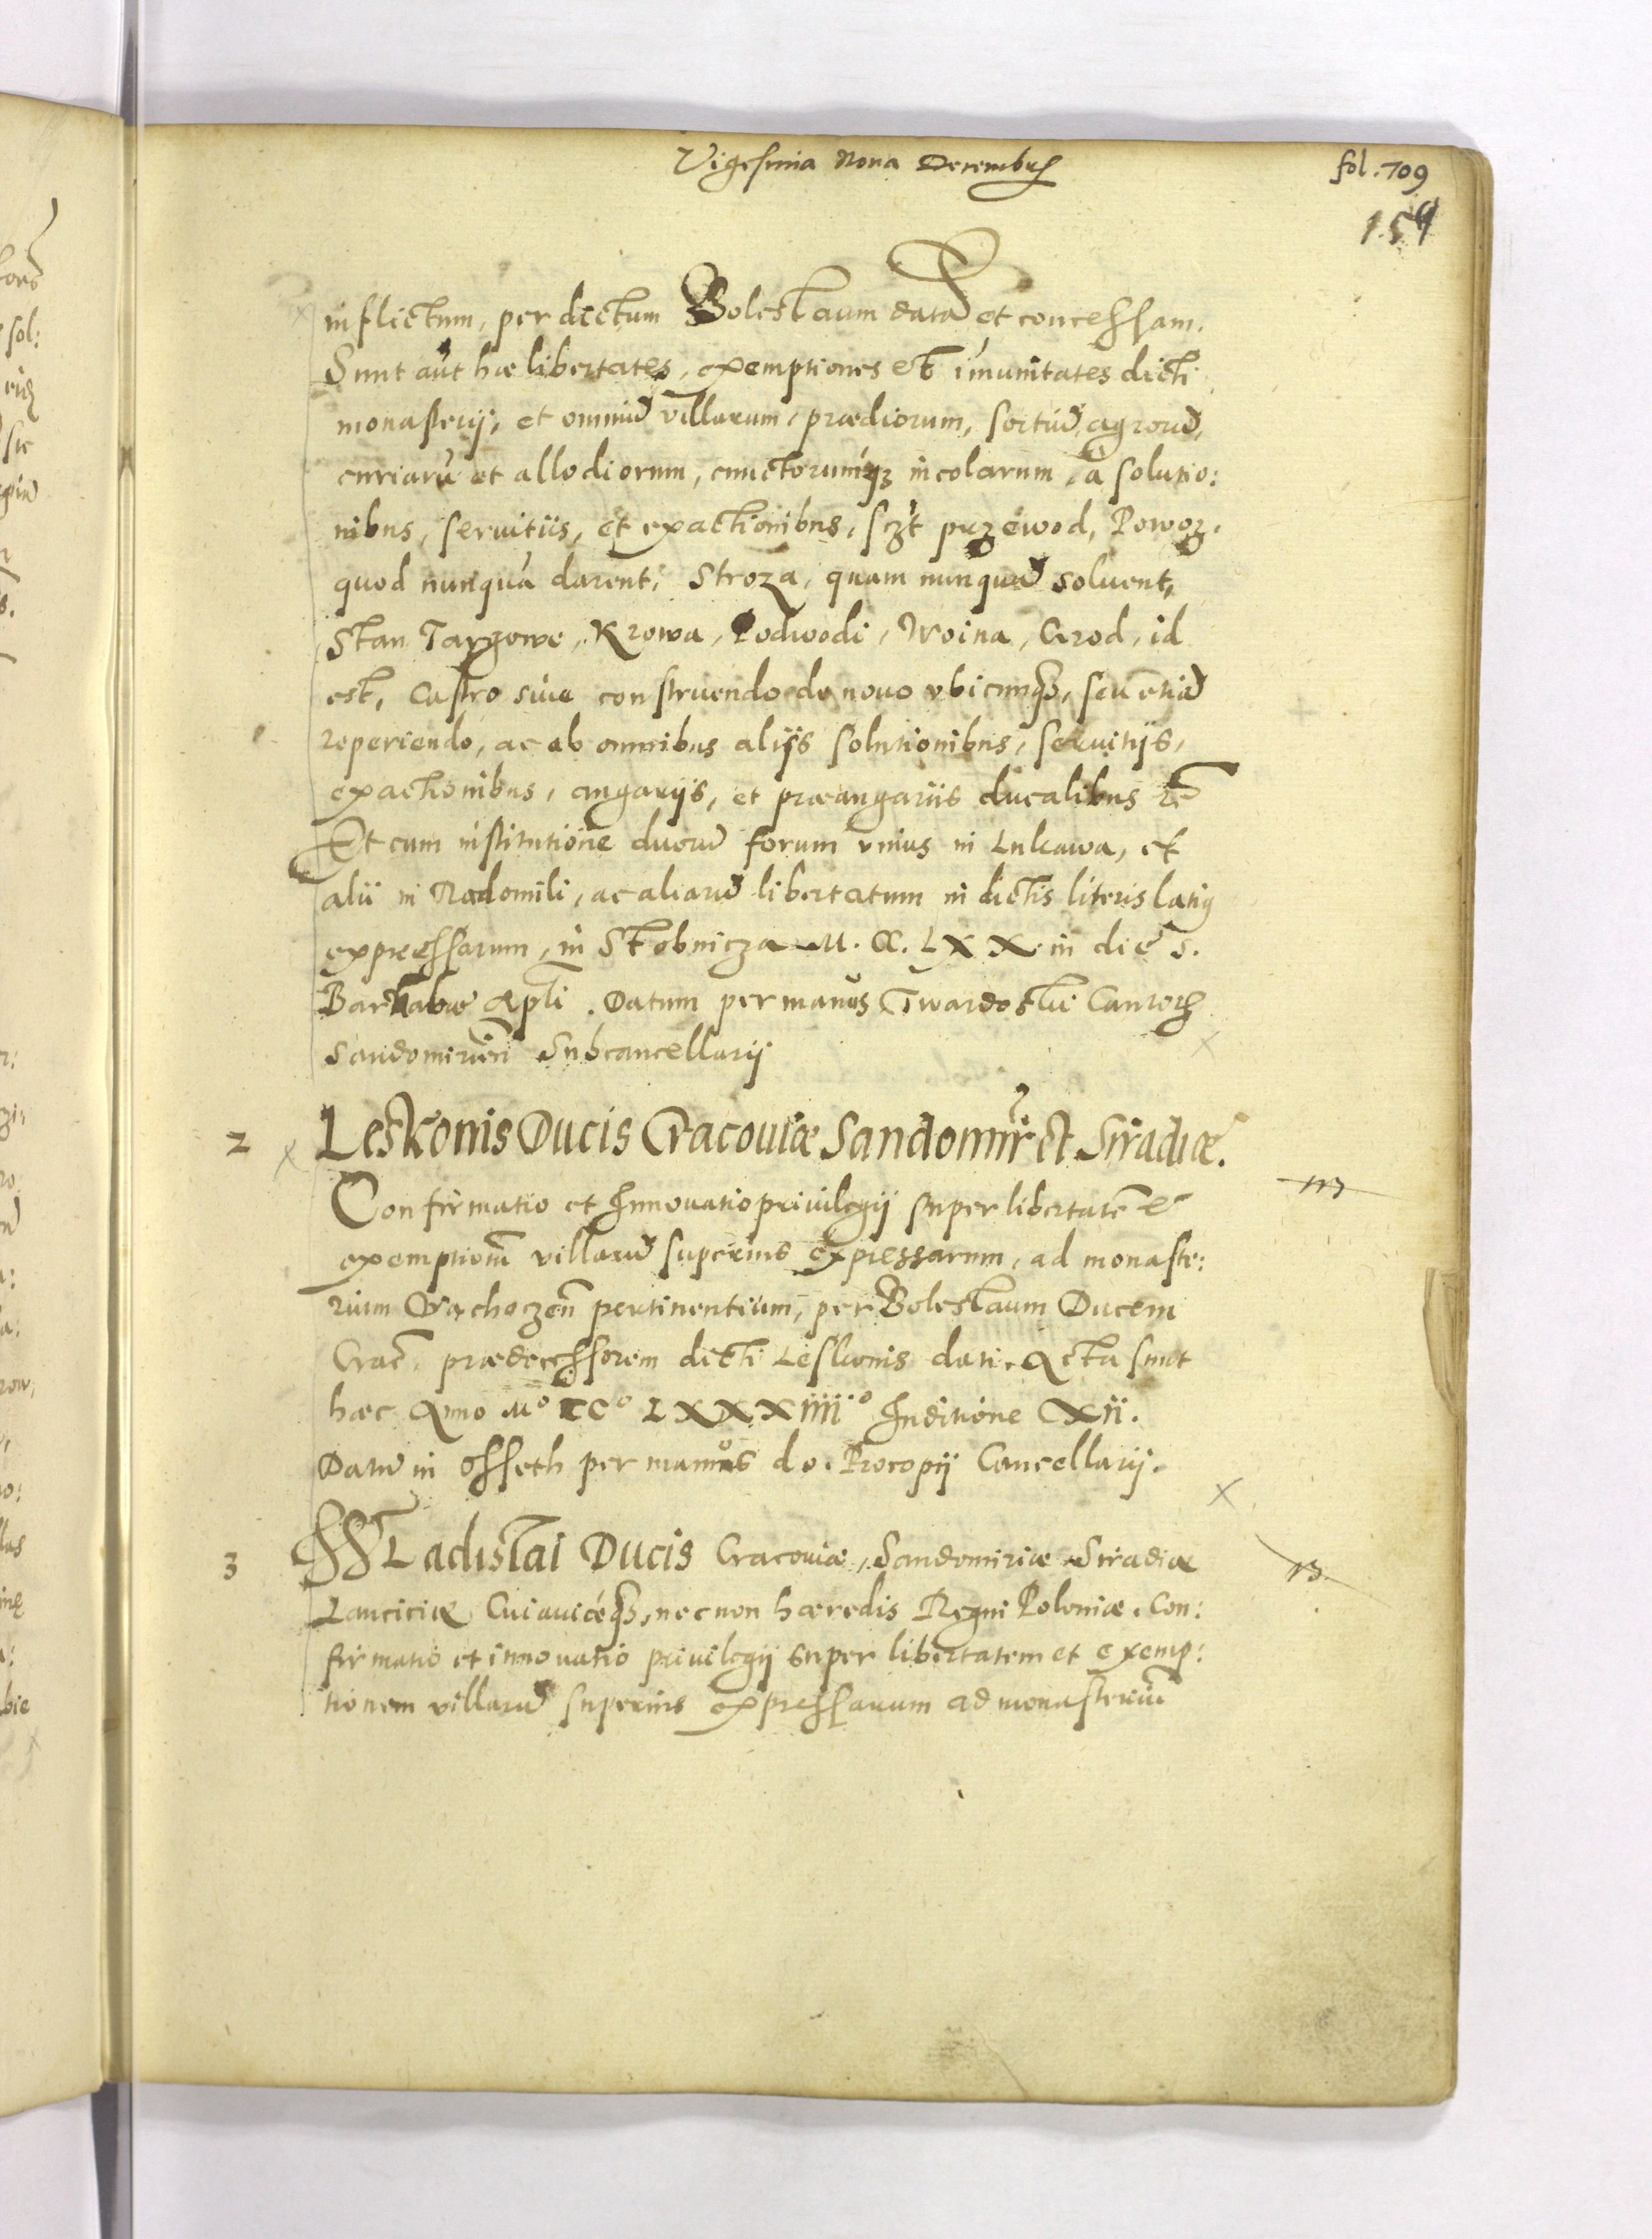 Vigesima Nona Decembris
fol. 709
159
inflictum, per dictum Boleslaum datā et concessam.
Sunt aūt hæ libertates, exemptiones et im̄unitates dicti
monasterij, et omniū villarum, prædiorum, sortiū, agrorū,
curiarū et allodiorum, cunctorumq3 incolarum, à solutio:
nibus, seruitiis, et exactionibus, sczt przewod, Powoz,
quod nunquā darent, Stroza, quam nunquā soluent,
Stan Targowe, Krowa, Podwodi, Woina, Grod, id
est, Castro siue construendo de nouo vbicunq3, seu etiā
reperiendo, ac ab omnibus alijs solutionibus, seruitijs,
exactionibus, angarijs, et præangariis ducalibus etc̄
Et cum institutione duorū forum vnius in Lukawa, et
alii in Radomili, ac aliarū libertatum in dictis literis latiꝰ
expressarum, in Stobnicza M. CC. LXX. in die S.
Barnabæ Apli. Datum per manus Twardoslai Canoch
Sandomirien̄ Subcancellarij
2 Leskonis Ducis Cracouiæ Sandomir et Siradiæ.
Confirmatio et Innouatio priuilegij super libertatē et
exemptionē villarū superius expressarum, ad monaste:
rium Wachoczen̄ pertinentium, per Boleslaum Ducem
Crac̄, prædecessorem dicti Leskonis dati. Acta sunt
hæc Anno Mº CCº LXXXiiiiº Inditione Xii.
Datū in Osseth per manus do. Procopij Cancellarij.
3 WLadislai Ducis Cracouiæ, Sandomiriæ Siradiæ
Lanciciæ Cuiauiæq3, necnon hæredis Regni Poloniæ. Con:
firmatio et innouatio priuilegij super libertatem et exemp:
tionem villarū superius expressarum ad monasteriū